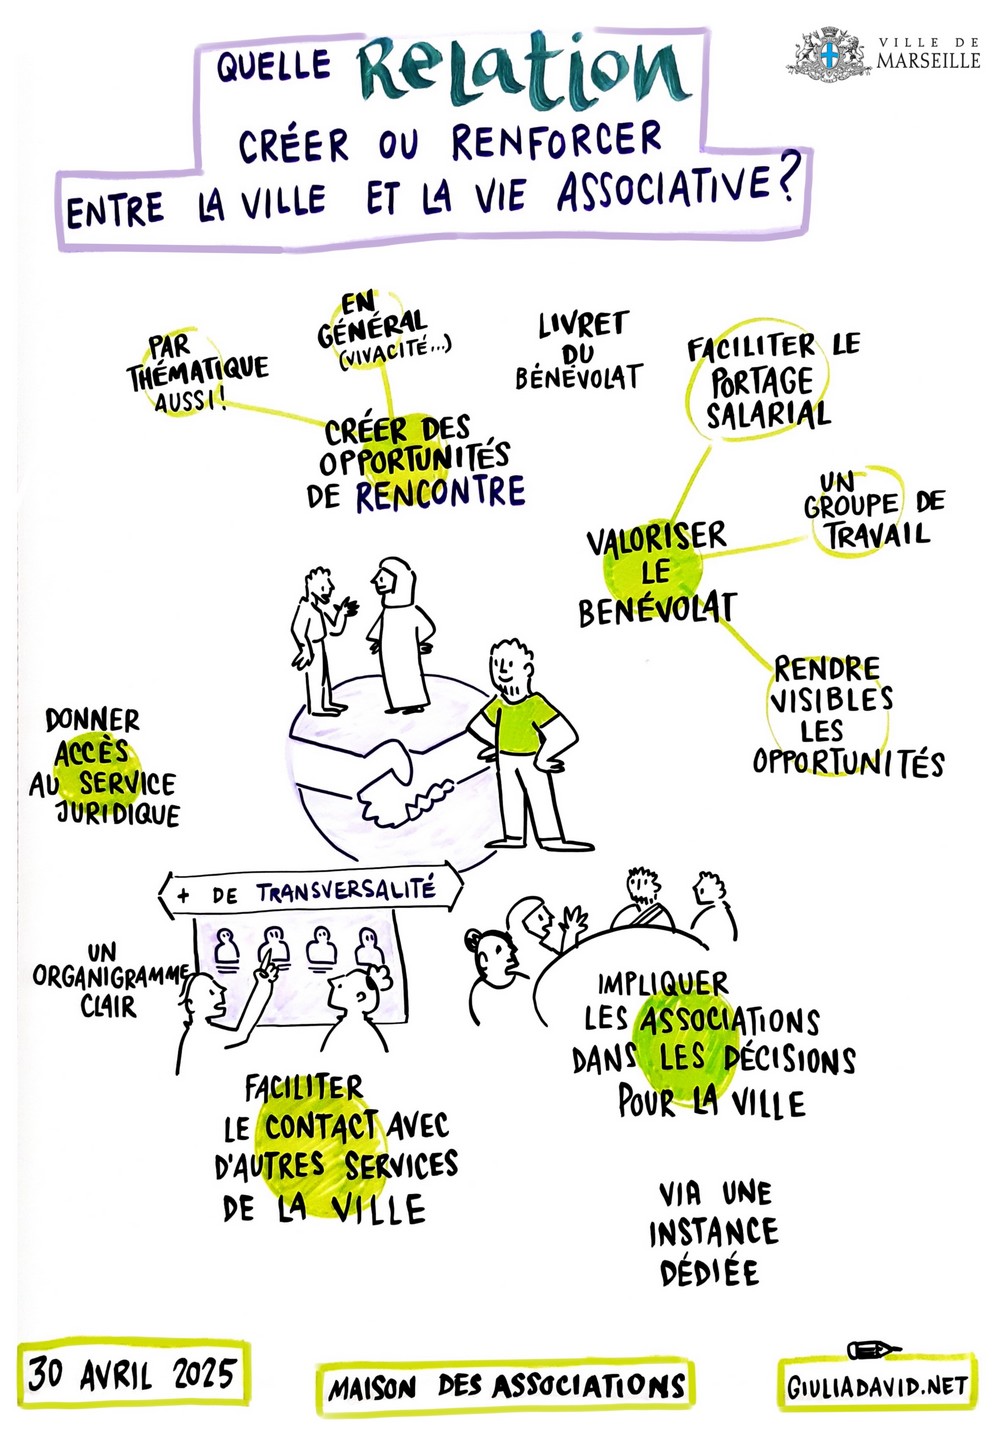 QUELLE Relation
CRÉER OU RENFORCER
ENTRE LA VILLE ET LA VIE ASSOCIATIVE?
VILLE DE
MARSEILLE
PAR
THÉMATIQUE
AUSSI!
EN
GÉNÉRAL
(VIVACITÉ...)
CRÉER DES
OPPORTUNITÉS
DE RENCONTRE
LIVRET
DU
BÉNÉVOLAT
FACILITER LE
PORTAGE
SALARIAL
UN
GROUPE DE
TRAVAIL
VALORISER
LE
BENÉVOLAT
RENDRE
VISIBLES
LES
OPPORTUNITÉS
DONNER
ACCÈS
AU SERVICE
JURIDIQUE
+ DE TRANSVERSALITÉ
UN
ORGANIGRAMME
CLAIR
FACILITER
LE CONTACT AVEC
D'AUTRES SERVICES
DE LA VILLE
IMPLIQUER
LES ASSOCIATIONS
DANS LES DÉCISIONS
POUR LA VILLE
VIA UNE
INSTANCE
DÉDIÉE
30 AVRIL 2025
MAISON DES ASSOCIATIONS
GIULIADAVID.NET